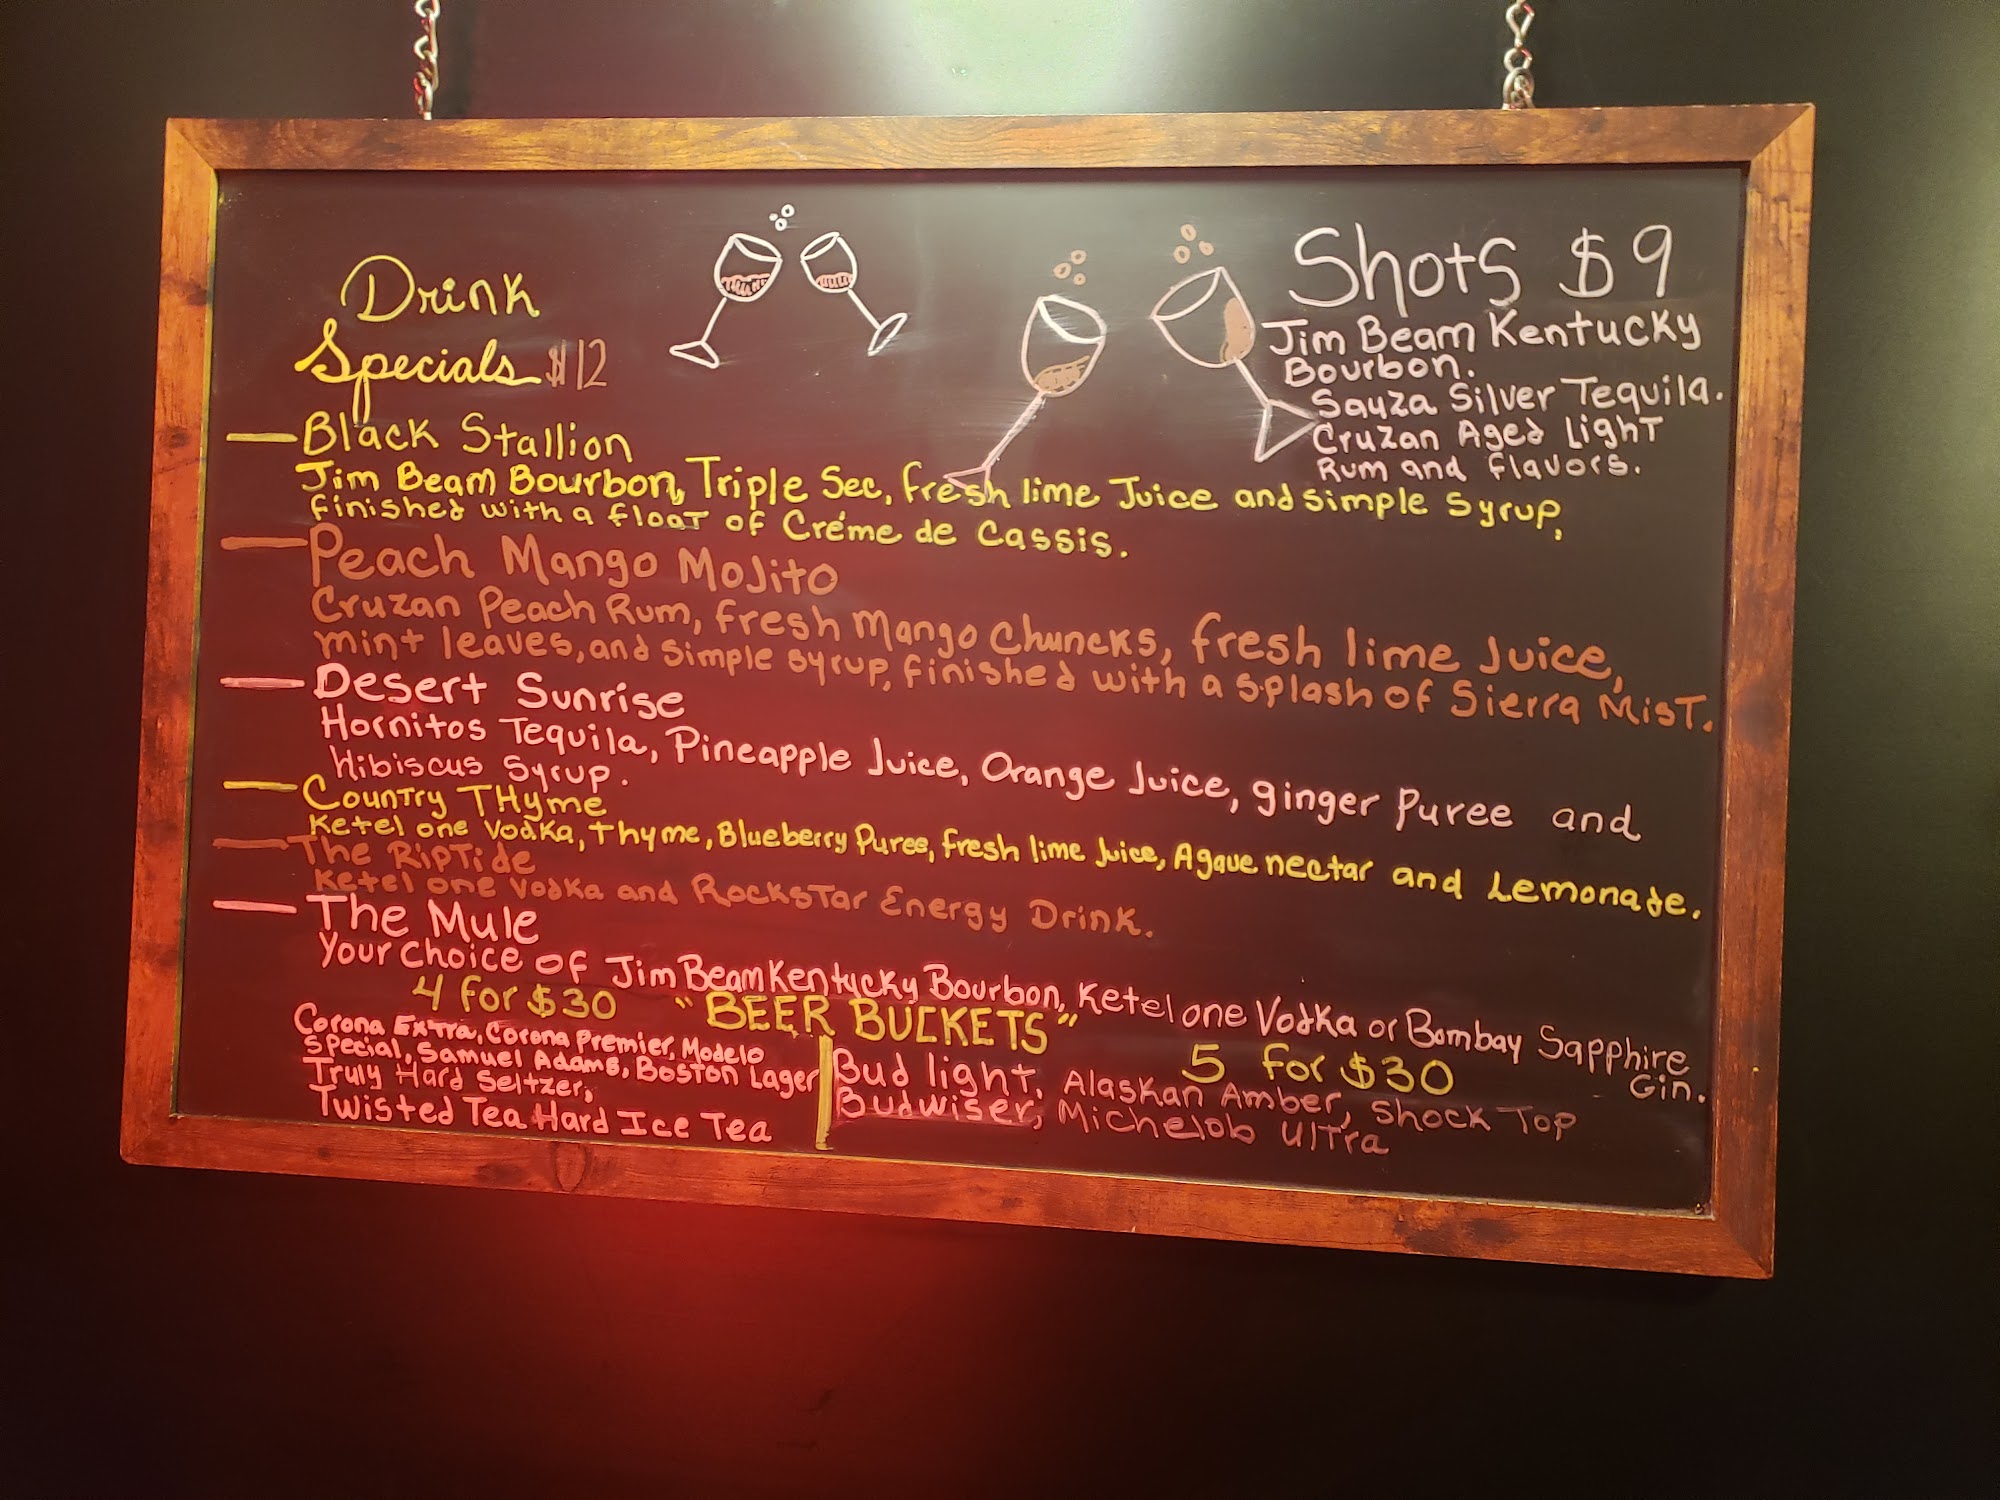 Drink
Specials $12
Shots $9
Jim Beam Kentucky
Bourbon.
Sauza Silver Tequila.
Cruzan Aged Light
Rum and flavors.
Black Stallion
Jim Beam Bourbon, Triple Sec, fresh lime Juice and simple syrup,
finished with a float of Créme de Cassis.
Peach Mango Mojito
Cruzan Peach Rum, fresh Mango Chuncks, fresh lime Juice,
mint leaves, and simple syrup, finished with a splash of Sierra Mist.
Desert Sunrise
Hornitos Tequila, Pineapple Juice, Orange Juice, ginger Puree and
Hibiscus Syrup.
Country THyme
Ketel one Vodka, thyme, Blueberry Puree, fresh lime Juice, Agave nectar and Lemonade.
The RipTide
Ketel one Vodka and RockStar Energy Drink.
The Mule
Your choice of Jim Beam Kentucky Bourbon, Ketel one Vodka or Bombay Sapphire
Gin.
"BEER BUCKETS"
4 for $30
Corona Extra, Corona Premier, Modelo
Special, Samuel Adams, Boston Lager
Truly Hard Seltzer,
Twisted Tea Hard Ice Tea
5 for $30
Bud light, Alaskan Amber, Shock Top
Budwiser, Michelob Ultra